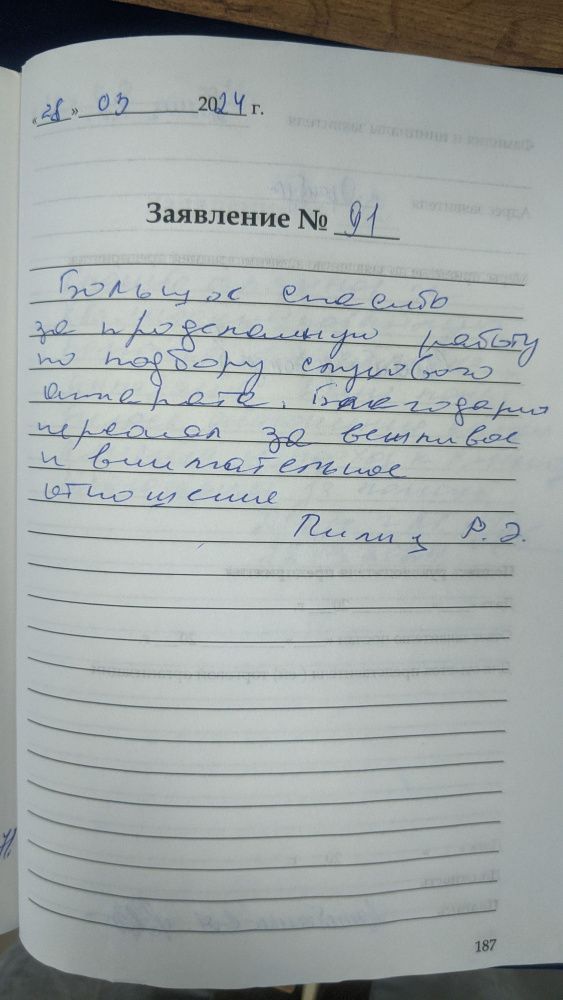 «28» 03 2024 г.
Заявление № 91
Большое спасибо
за проделанную работу
по подбору слухового
аппарата. Благодарю
персонал за вежливое
и внимательное
отношение
Р. Э.
187